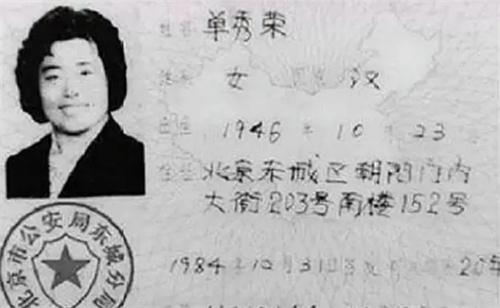 姓名 单秀荣
性别 女 民族 汉
出生 1946 年 10 月 23
住址 北京东城区朝阳门内
大街203号南楼152号
1984 年 12 月 31 日 20年
北京市公安局东城分局